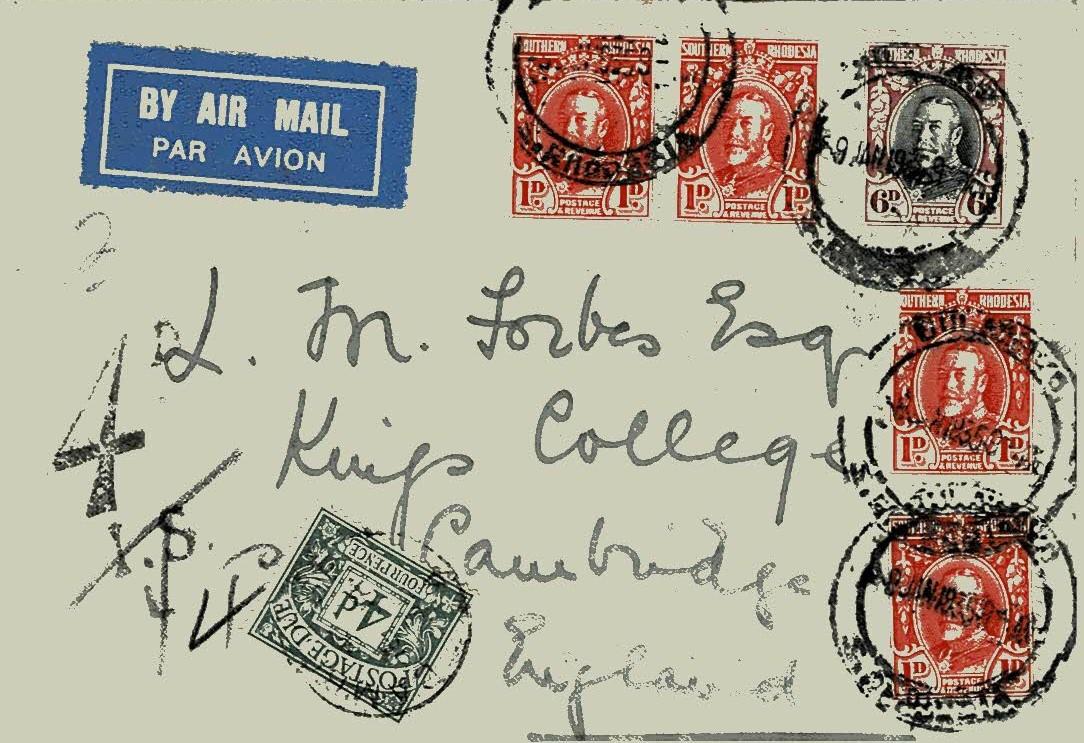 BY AIR MAIL
PAR AVION
SOUTHERN RHODESIA
1D. 1D.
POSTAGE & REVENUE
SOUTHERN RHODESIA
1D. 1D.
POSTAGE & REVENUE
RHODESIA
6D. 6D.
POSTAGE & REVENUE
9 JAN 19
L. M. Forbes Esq
Kings College
Cambridge
England
SOUTHERN RHODESIA
1D. 1D.
POSTAGE & REVENUE
1D. 1D.
POSTAGE & REVENUE
9 JAN
4D
4
POSTAGE DUE
4d
FOURPENCE